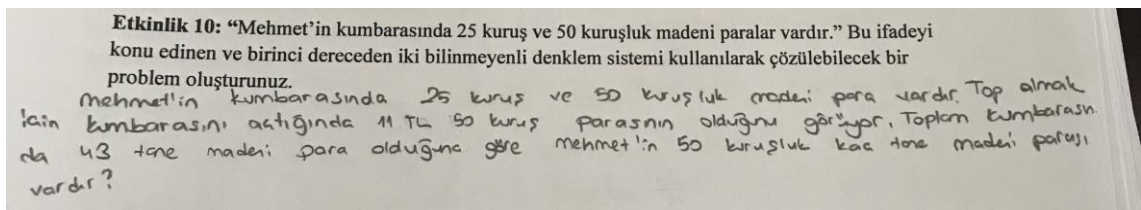 Etkinlik 10: “Mehmet’in kumbarasında 25 kuruş ve 50 kuruşluk madeni paralar vardır.” Bu ifadeyi
konu edinen ve birinci dereceden iki bilinmeyenli denklem sistemi kullanılarak çözülebilecek bir
problem oluşturunuz.
Mehmet'in kumbarasında 25 kuruş ve 50 kuruşluk madeni para vardır. Top almak
için kumbarasını açtığında 11 TL 50 kuruş parasnın olduğunu görüyor. Toplam kumbarasın
da 43 tane madeni para olduğuna göre mehmet'in 50 kuruşluk kaç tane madeni parası
vardır?